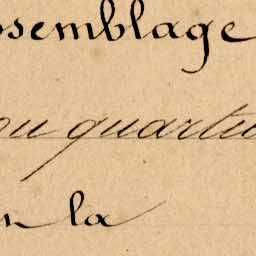 ssemblage
ou quartie
n la